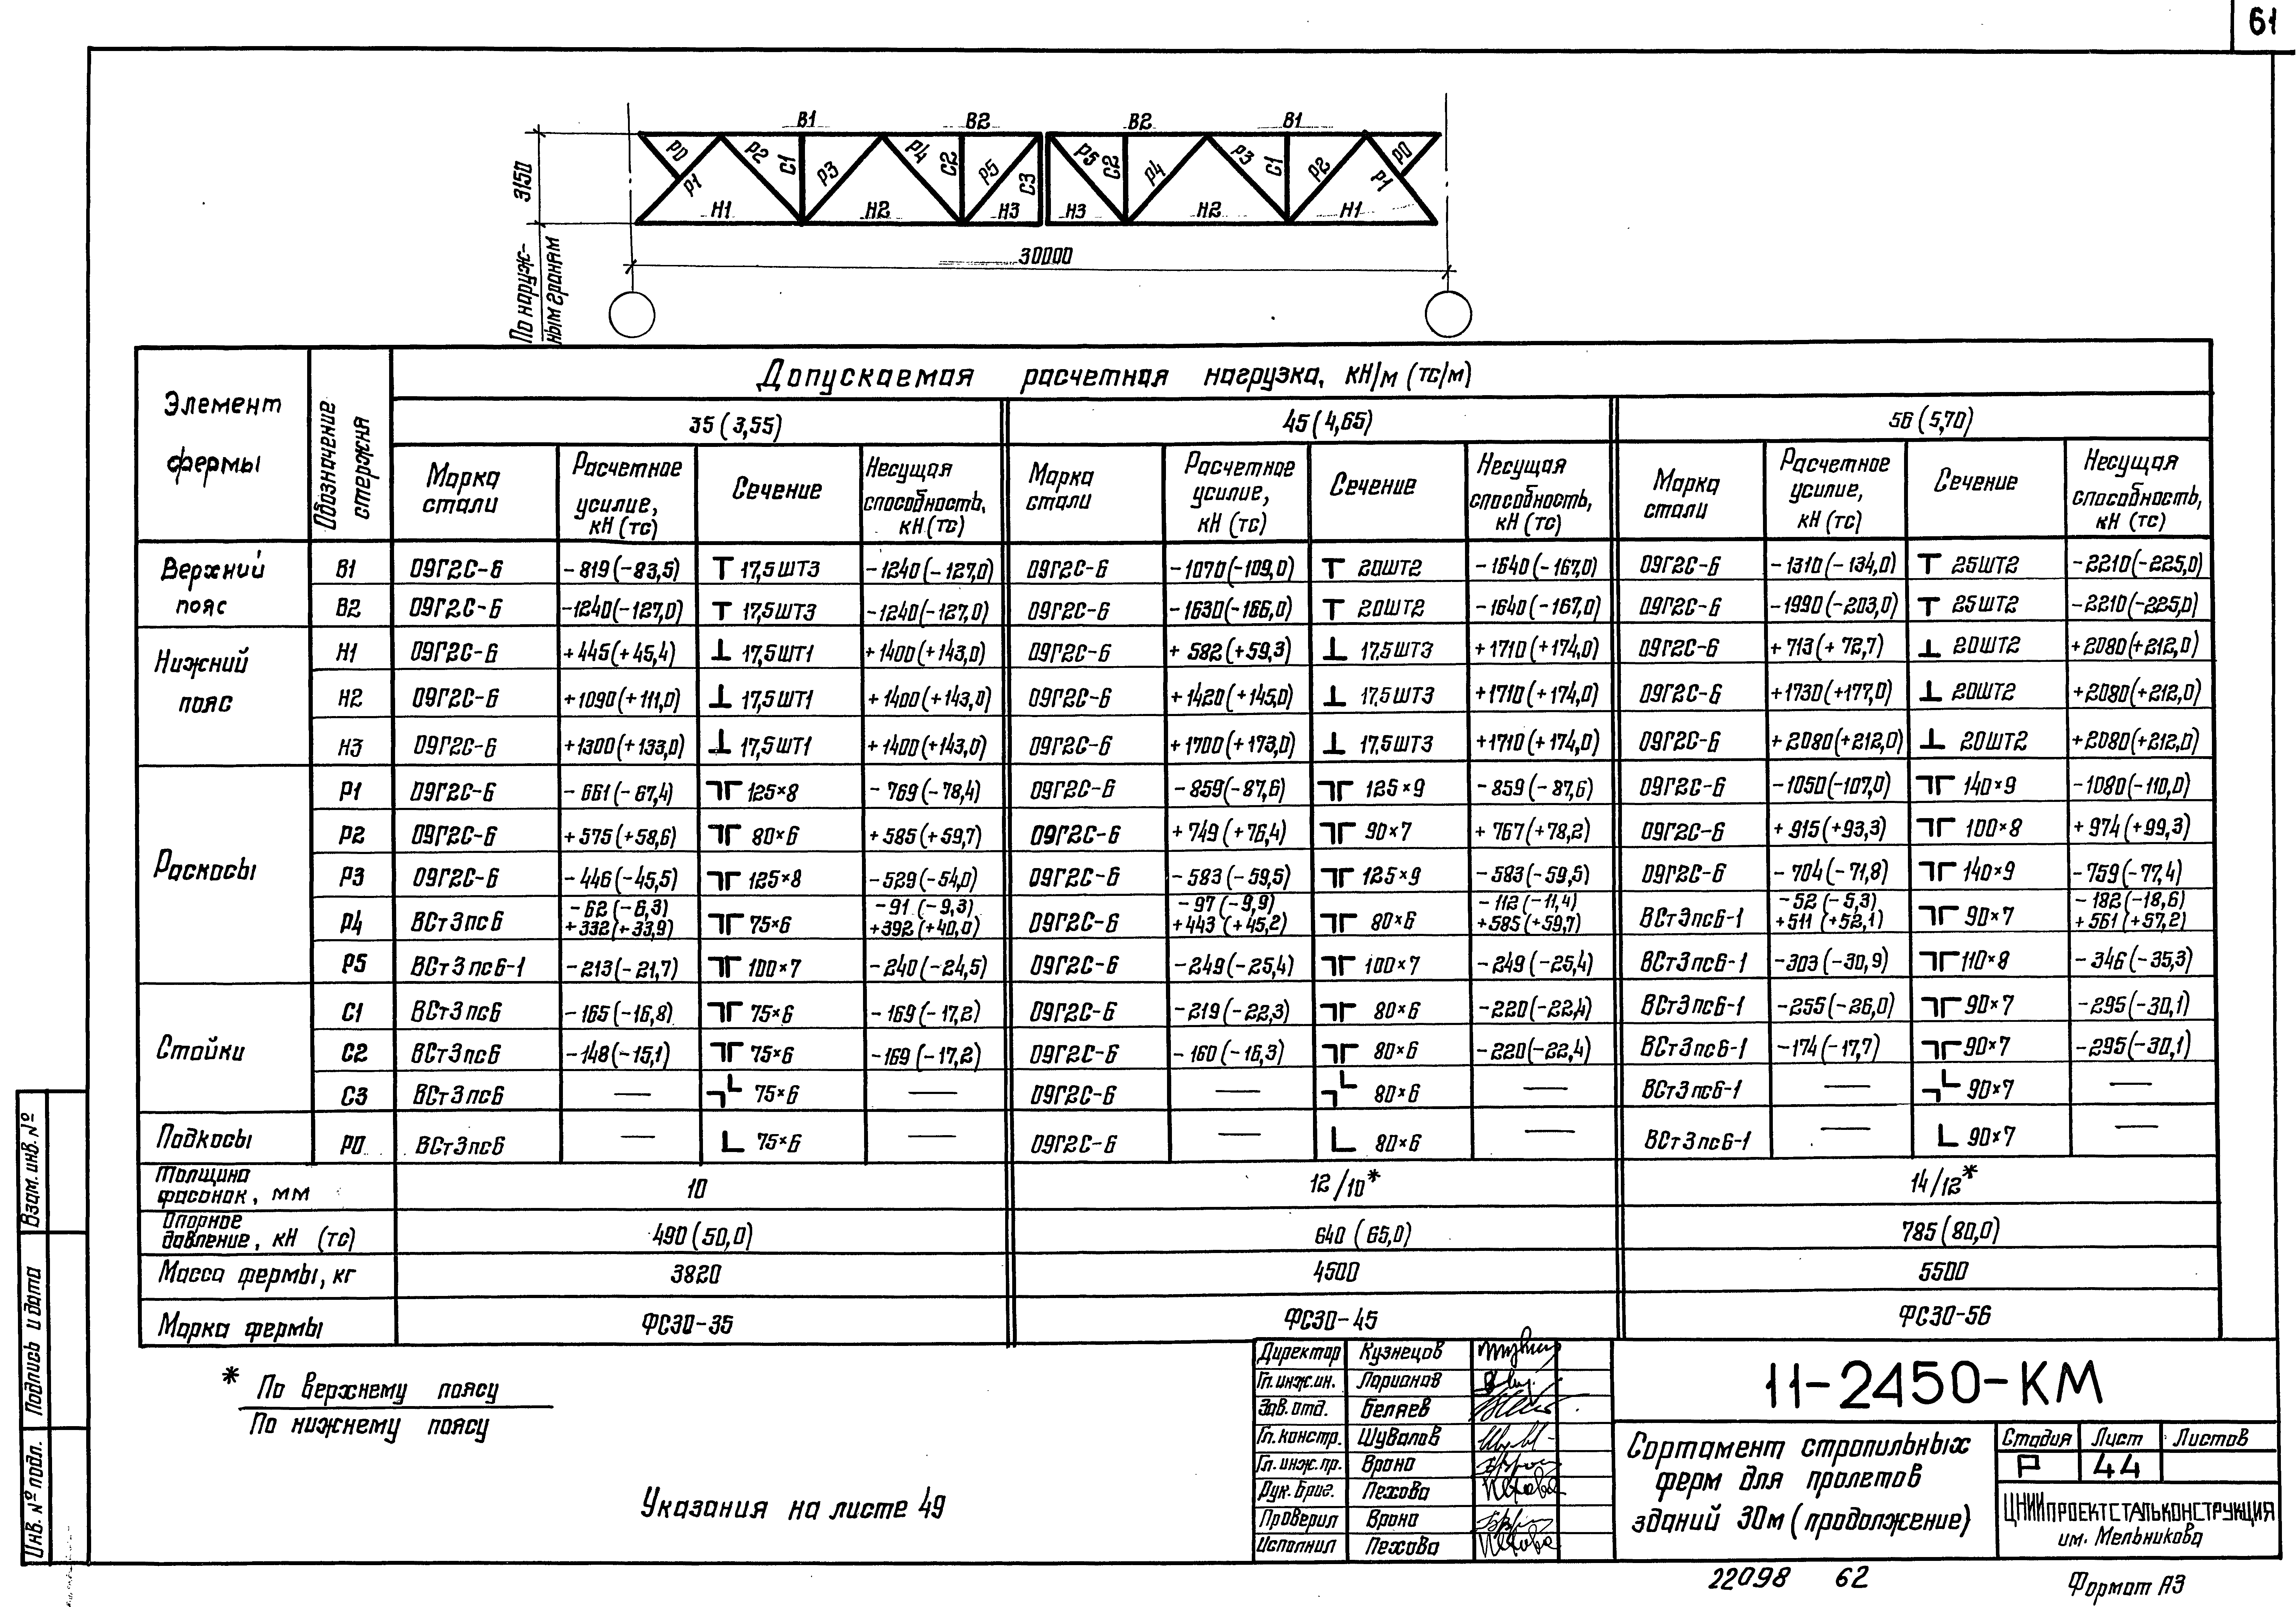 61
В1 В2 В2 В1
Р0 Р1 Р2 С1 Р3 Р4 С2 Р5 С3 Р5 С2 Р4 Р3 С1 Р2 Р1 Р0
Н1 Н2 Н3 Н3 Н2 Н1
3150
30000
По наруж-
ным граням
Элемент фермы
Обозначение стержня
Допускаемая расчетная нагрузка, кН/м (тс/м)
35 (3,55) 45 (4,65) 56 (5,70)
Марка стали Расчетное усилие, кН (тс) Сечение Несущая способность, кН (тс) Марка стали Расчетное усилие, кН (тс) Сечение Несущая способность, кН (тс) Марка стали Расчетное усилие, кН (тс) Сечение Несущая способность, кН (тс)
Верхний пояс
В1 09Г2С-6 -819 (-83,5) 17,5ШТ3 -1240 (-127,0) 09Г2С-6 -1070 (-109,0) 20ШТ2 -1640 (-167,0) 09Г2С-6 -1310 (-134,0) 25ШТ2 -2210 (-225,0)
В2 09Г2С-6 -1240 (-127,0) 17,5ШТ3 -1240 (-127,0) 09Г2С-6 -1630 (-166,0) 20ШТ2 -1640 (-167,0) 09Г2С-6 -1990 (-203,0) 25ШТ2 -2210 (-225,0)
Нижний пояс
Н1 09Г2С-6 +445 (+45,4) 17,5ШТ1 +1400 (+143,0) 09Г2С-6 +582 (+59,3) 17,5ШТ3 +1710 (+174,0) 09Г2С-6 +713 (+72,7) 20ШТ2 +2080 (+212,0)
Н2 09Г2С-6 +1090 (+111,0) 17,5ШТ1 +1400 (+143,0) 09Г2С-6 +1420 (+145,0) 17,5ШТ3 +1710 (+174,0) 09Г2С-6 +1730 (+177,0) 20ШТ2 +2080 (+212,0)
Н3 09Г2С-6 +1300 (+133,0) 17,5ШТ1 +1400 (+143,0) 09Г2С-6 +1700 (+173,0) 17,5ШТ3 +1710 (+174,0) 09Г2С-6 +2080 (+212,0) 20ШТ2 +2080 (+212,0)
Раскосы
Р1 09Г2С-6 -661 (-67,4) 125×8 -769 (-78,4) 09Г2С-6 -859 (-87,6) 125×9 -859 (-87,6) 09Г2С-6 -1050 (-107,0) 140×9 -1080 (-110,0)
Р2 09Г2С-6 +575 (+58,6) 80×6 +585 (+59,7) 09Г2С-6 +749 (+76,4) 90×7 +767 (+78,2) 09Г2С-6 +915 (+93,3) 100×8 +974 (+99,3)
Р3 09Г2С-6 -446 (-45,5) 125×8 -529 (-54,0) 09Г2С-6 -583 (-59,5) 125×9 -583 (-59,5) 09Г2С-6 -704 (-71,8) 140×9 -759 (-77,4)
Р4 ВСт3пс6 -62 (-6,3) +332 (+33,9) 75×6 -91 (-9,3) +392 (+40,0) 09Г2С-6 -97 (-9,9) +443 (+45,2) 80×6 -112 (-11,4) +585 (+59,7) ВСт3пс6-1 -52 (-5,3) +511 (+52,1) 90×7 -182 (-18,6) +561 (+57,2)
Р5 ВСт3пс6-1 -213 (-21,7) 100×7 -240 (-24,5) 09Г2С-6 -249 (-25,4) 100×7 -249 (-25,4) ВСт3пс6-1 -303 (-30,9) 110×8 -346 (-35,3)
Стойки
С1 ВСт3пс6 -165 (-16,8) 75×6 -169 (-17,2) 09Г2С-6 -219 (-22,3) 80×6 -220 (-22,4) ВСт3пс6-1 -255 (-26,0) 90×7 -295 (-30,1)
С2 ВСт3пс6 -148 (-15,1) 75×6 -169 (-17,2) 09Г2С-6 -160 (-16,3) 80×6 -220 (-22,4) ВСт3пс6-1 -174 (-17,7) 90×7 -295 (-30,1)
С3 ВСт3пс6 — 75×6 — 09Г2С-6 — 80×6 — ВСт3пс6-1 — 90×7 —
Подкосы Р0 ВСт3пс6 — 75×6 — 09Г2С-6 — 80×6 — ВСт3пс6-1 — 90×7 —
Толщина фасонок, мм 10 12/10* 14/12*
Опорное давление, кН (тс) 490 (50,0) 640 (65,0) 785 (80,0)
Масса фермы, кг 3820 4500 5500
Марка фермы ФС30-35 ФС30-45 ФС30-56
* По верхнему поясу
По нижнему поясу
Указания на листе 49
Директор Кузнецов
Гл. инж. ин. Ларионов
Зав. отд. Беляев
Гл. констр. Шувалов
Гл. инж. пр. Врона
Рук. бриг. Пехова
Проверил Врона
Исполнил Пехова
11-2450-КМ
Сортамент стропильных
ферм для пролетов
зданий 30м (продолжение)
Стадия Лист Листов
Р 44
ЦНИИПРОЕКТСТАЛЬКОНСТРУКЦИЯ
им. Мельникова
22098 62
Формат А3
Взам. инв. №
Подпись и дата
Инв. № подл.